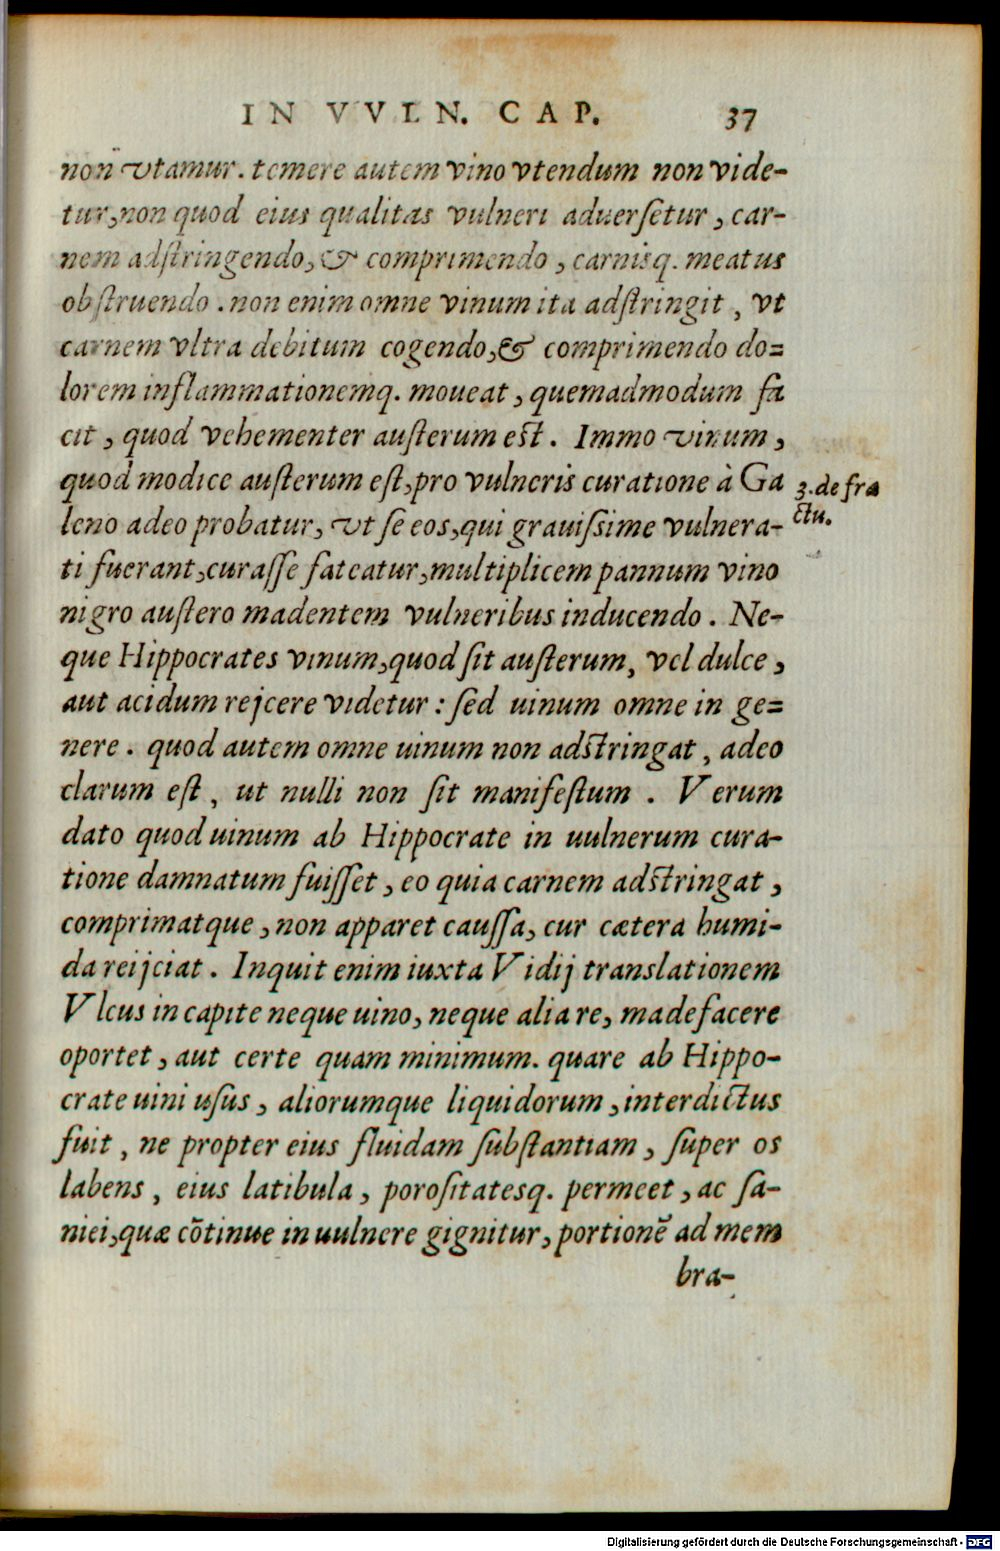 IN VVLN. CAP. 37
non vtamur. temere autem vino vtendum non vide-
tur, non quod eius qualitas vulneri aduersetur, car-
nem adstringendo, & comprimendo, carnisq. meatus
obstruendo. non enim omne vinum ita adstringit, vt
carnem vltra debitum cogendo, & comprimendo do=
lorem inflammationemq. moueat, quemadmodum fa
cit, quod vehementer austerum est. Immo vinum,
quod modice austerum est, pro vulneris curatione à Ga
leno adeo probatur, vt se eos, qui grauissime vulnera-
ti fuerant, curasse fateatur, multiplicem pannum vino
nigro austero madentem vulneribus inducendo. Ne-
que Hippocrates vinum, quod sit austerum, vel dulce,
aut acidum rejcere videtur: sed uinum omne in ge=
nere. quod autem omne uinum non adstringat, adeo
clarum est, ut nulli non sit manifestum. Verum
dato quod uinum ab Hippocrate in uulnerum cura-
tione damnatum fuisset, eo quia carnem adstringat,
comprimatque, non apparet caussa, cur cætera humi-
da reijciat. Inquit enim iuxta Vidij translationem
Vlcus in capite neque uino, neque alia re, madefacere
oportet, aut certe quam minimum. quare ab Hippo-
crate uini usus, aliorumque liquidorum, interdictus
fuit, ne propter eius fluidam substantiam, super os
labens, eius latibula, porositatesq. permeet, ac sa-
niei, quæ cōtinue in uulnere gignitur, portionē ad mem
bra-
3. de fra
ctu.
Digitalisierung gefördert durch die Deutsche Forschungsgemeinschaft - DFG